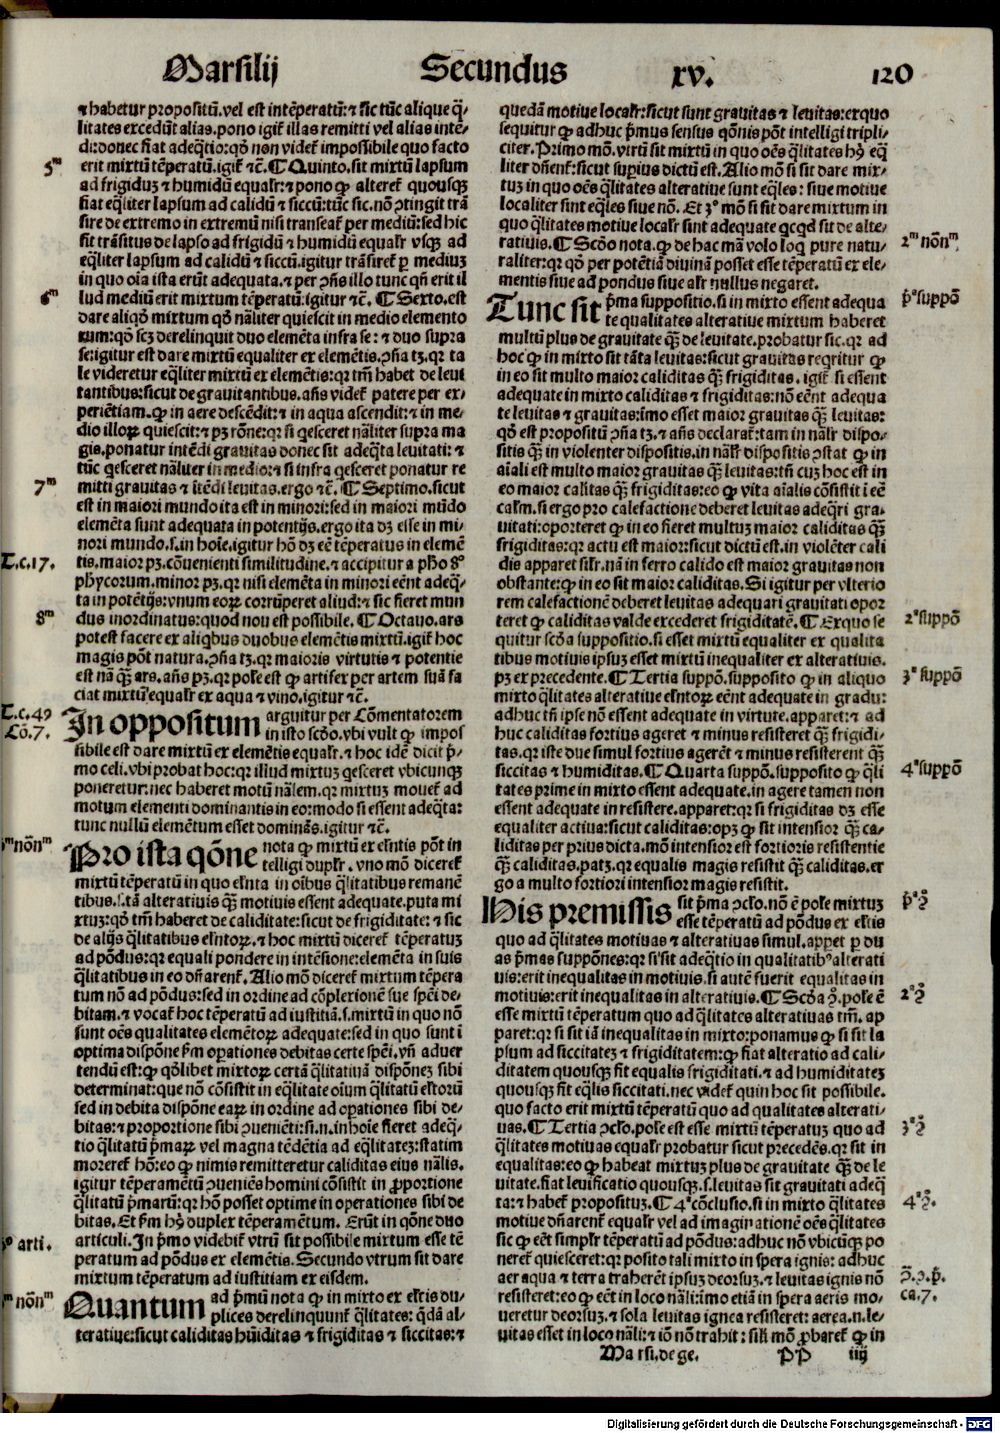 Marsilij Secundus xv. 120
⁊ habetur propositū. vel est intēperatū: ⁊ sic tūc alique q̄-
litates excedūt alias. pono igit᷑ illas remitti vel alias intē-
di: donec fiat adeq̄tio: qđ non videt᷑ impossibile quo facto
erit mixtū tēperatū. igit᷑ ⁊c̄. ¶ Quinto. sit mixtū lapsum
ad frigiduꝫ ⁊ humidū equalr̄: ⁊ pono ꝙ alteret᷑ quousqꝫ
fiat eq̄liter lapsum ad calidū ⁊ siccū: tūc sic. nō ↄtingit trā
sire de extremo in extremū nisi transeat᷑ per mediū: sed hic
fit trāsitus de lapso ad frigidū ⁊ humidū equalr̄ vsqꝫ ad
eq̄liter lapsum ad calidū ⁊ siccū. igitur trāsiret᷑ ꝑ mediuꝫ
in quo oīa ista erūt adequata. ⁊ per ↄn̄s illo tunc qn̄ erit il
lud mediū erit mixtum tēperatū: igitur ⁊c̄. ¶ Sexto. est
dare aliqđ mixtum qđ nāliter quiescit in medio elemento
rum: qđ scꝫ derelinquit duo elementa infra se: ⁊ duo supra
se: igitur est dare mixtū equaliter ex elemētis. ↄn̄a tꝫ. qr ta
le videretur eq̄liter mixtū ex elemētis: qr tm̄ habet de leui
tantibus: sicut de grauitantibus. an̄s videt᷑ patere per ex-
periētiam. ꝙ in aere descēdit: ⁊ in aqua ascendit: ⁊ in me-
dio illoꝝ quiescit: ⁊ pꝫ rōne: qr si q̇esceret nāliter supra ma
gis. ponatur intēdi grauitas donec sit adeq̄ta leuitati: ⁊
tūc q̇esceret nāliter in medio: ⁊ si infra q̇esceret ponatur re
mitti grauitas ⁊ itēdi leuitas. ergo ⁊c̄. ¶ Septimo. sicut
est in maiori mundo ita est in minori: sed in maiori mūdo
elemēta sunt adequata in potentijs. ergo ita dꝫ esse in mi-
nori mundo. s. in hoīe. igitur hō dꝫ eē tēperatus in elemē
tis. maior pꝫ. cōuenienti similitudine. ⁊ accipitur a pho 8°
phycorum. minor pꝫ. qr nisi elemēta in minori eēnt adeq̄-
ta in potētijs: vnum eoꝝ corrūperet aliud: ⁊ sic fieret mun
dus inordinatus: quod non est possibile. ¶ Octauo. ars
potest facere ex aliqbus duobus elemētis mixtū. igit᷑ hoc
magis pōt natura. ↄn̄a tꝫ. qr maioris virtutis ⁊ potentie
est nā q̄ꝫ ars. an̄s pꝫ. qr posse est ꝙ artifex per artem suā fa
ciat mixtū equalr̄ ex aqua ⁊ vino. igitur ⁊c̄.
In oppositum arguitur per Cōmentatorem
in isto scđo. vbi vult ꝙ impos
sibile est dare mixtū ex elemētis equalr̄. ⁊ hoc idē dicit p̄-
mo celi. vbi probat hoc: qr illud mixtuꝫ q̇esceret vbicunqꝫ
poneretur: nec haberet motū nālem. qr mixtuꝫ mouet᷑ ad
motum elementi dominantis in eo: modo si essent adeq̄ta:
tunc nullū elemētum esset dominās. igitur ⁊c̄.
Pro ista qōne nota ꝙ mixtū ex eln̄tis pōt in
telligi duplr̄. vno mō diceret᷑
mixtū tēperatū in quo elīnta in oībus q̄litatibus remanē
tibus. s. tā alteratiuis q̄ꝫ motiuis essent adequate. puta mi
xtuꝫ: qđ tm̄ haberet de caliditate: sicut de frigiditate: ⁊ sic
de alijs q̄litatibus elīntoꝝ. ⁊ hoc mixtū diceret᷑ tēperatuꝫ
ad pōdus: qr equali pondere in intēsione: elemēta in suis
q̄litatibus in eo dn̄arent᷑. Alio mō diceret᷑ mixtum tēpera
tum nō ad pōdus: sed in ordine ad cōplexionē sue spēi de-
bitam. ⁊ vocat᷑ hoc tēperatū ad iustitiā. s. mixtū in quo nō
sunt oēs qualitates elemētoꝝ adequate: sed in quo sunt ī
optima dispōne ẜm oꝑationes debitas certe spēi. vn̄ aduer
tendū est: ꝙ qōlibet mixtoꝝ certā q̄litatiuā dispōneꝫ sibi
determinat: que nō cōsistit in eq̄litate oīum q̄litatū elītorū
sed in debita dispōne eaꝝ in ordine ad oꝑationes sibi de-
bitas: ⁊ proportione sibi ↄuenīeti: si. n. in hoīe fieret adeq̄-
tio q̄litatū p̄maꝝ vel magna tēdētia ad eq̄litateꝫ: statim
moreret᷑ hō: eo ꝙ nimis remitteretur caliditas eius nālis.
igitur tēperamētū ↄueniēs homini cōsistit in ꝓportione
q̄litatū p̄martū: qr hō posset optime in operationes sibi de
bitas. Et ẜm hꝫ duplex tēperamētum. Erūt in qōne duo
articuli. In p̄mo videbit᷑ vtrū sit possibile mixtum esse tē
peratum ad pōdus ex elemētis. Secundo vtrum sit dare
mixtum tēperatum ad iustitiam ex eisdem.
Quantum ad p̄mū nota ꝙ in mixto ex elītis du-
plices derelinquunt᷑ q̄litates: q̄dā al-
teratiue: sicut caliditas hūiditas ⁊ frigiditas ⁊ siccitas: ⁊
5ᵐ
6ᵐ
7ᵐ
T.c.17.
8ᵐ
T.c.49
Cō.7.
nōnᵐ
arti.
nōnᵐ
quedā motiue localr̄: sicut sunt grauitas ⁊ leuitas: ex quo
sequitur ꝙ adhuc p̄mus sensus qōnis pōt intelligi tripli-
citer. Primo mō. vtrū sit mixtū in quo oēs q̄litates hꝫ eq̄
liter dn̄ent᷑: sicut superius dictū est. Alio mō si sit dare mix-
tuꝫ in quo oēs q̄litates alteratiue sunt eq̄les: siue motiue
localiter sint eq̄les siue nō. Et 3° mō si sit dare mixtum in
quo q̄litates motiue localr̄ sint adequate qcqđ sit de alte-
ratiuis. ¶ Scđo nota. ꝙ de hac mā volo loq̇ pure natu-
raliter: qr qđ per potētiā diuinā posset esse tēperatū ex ele-
mentis siue ad pondus siue alr̄ nullus negaret.
Tunc sit p̄ma suppositio. si in mixto essent adequa
te qualitates alteratiue mixtum haberet
multū plus de grauitate q̄ꝫ de leuitate. probatur sic. qr ad
hoc ꝙ in mixto sit tāta leuitas: sicut grauitas reqritur ꝙ
in eo sit multo maior caliditas q̄ꝫ frigiditas. igit᷑ si essent
adequate in mixto caliditas ⁊ frigiditas: nō eēnt adequa
te leuitas ⁊ grauitas: īmo esset maior grauitas q̄ꝫ leuitas:
qđ est propositū ↄn̄a tꝫ. ⁊ an̄s declarat᷑: tam in nālr̄ dispo-
sitis q̄ꝫ in violenter dispositis. in nālr̄ dispositis ↄstat ꝙ in
aīali est multo maior grauitas q̄ꝫ leuitas: tn̄ cuꝫ hoc est in
eo maior calitas q̄ꝫ frigiditas: eo ꝙ vita aīalis cōsistit ī eē
calm̄. si ergo pro calefactione deberet leuitas adeq̄ri gra-
uitati: oporteret ꝙ in eo fieret multuꝫ maior caliditas q̄ꝫ
frigiditas: qr actu est maior: sicut dictū est. in violēter cali
dis apparet silr̄. nā in ferro calido est maior grauitas non
obstante: ꝙ in eo sit maior caliditas. Si igitur per vlterio
rem calefactionē deberet leuitas adequari grauitati opor
teret ꝙ caliditas valde excederet frigiditatē. ¶ Ex quo se
quitur scđa suppositio. si esset mixtū equaliter ex qualita
tibus motiuis ipsuꝫ esset mixtū inequaliter ex alteratiuis.
pꝫ ex precedente. ¶ Tertia suppō. supposito ꝙ in aliquo
mixto q̄litates alteratiue elīntoꝝ eēnt adequate in gradu:
adhuc tn̄ ipse nō essent adequate in virtute. apparet: ⁊ ad
huc caliditas fortius ageret ⁊ minus resisteret q̄ꝫ frigidi-
tas. qr iste due simul fortius agerēt ⁊ minus resisterent q̄ꝫ
siccitas ⁊ humiditas. ¶ Quarta suppō. supposito ꝙ q̄li
tates prime in mixto essent adequate. in agere tamen non
essent adequate in resistere. apparet: qr si frigiditas dꝫ esse
equaliter actiua: sicut caliditas: opꝫ ꝙ sit intensior q̄ꝫ ca-
liditas per prius dicta. mō intensior est fortioris resistentie
q̄ꝫ caliditas. patꝫ. qr equalis magis resistit q̄ꝫ caliditas. er
go a multo fortiori intensior magis resistit.
His premissis sit p̄ma ↄclo. nō ē posse mixtuꝫ
esse tēperatū ad pōdus ex elītis
quo ad q̄litates motiuas ⁊ alteratiuas simul. appet ꝑ du
as p̄mas suppōnes: qr si sit adeq̄tio in qualitatibꝰ alterati
uis: erit inequalitas in motiuis. si autē fuerit equalitas in
motiuis: erit inequalitas in alteratiuis. ¶ Scđa ↄ. posse ē
esse mixtū tēperatum quo ad q̄litates alteratiuas tm̄. ap
paret: qr si sit iā inequalitas in mixto: ponamus ꝙ si sit la
psum ad siccitateꝫ ⁊ frigiditatem: ꝙ fiat alteratio ad cali-
ditatem quousqꝫ sit equalis frigiditati. ⁊ ad humiditateꝫ
quousqꝫ sit eq̄lis siccitati. nec videt᷑ quin hoc sit possibile.
quo facto erit mixtū tēperatū quo ad qualitates alterati-
uas. ¶ Tertia ↄclo. posse est esse mixtū tēperatuꝫ quo ad
q̄litates motiuas equalr̄ probatur sicut precedēs. qr sit in
equalitas: eo ꝙ habeat mixtuꝫ plus de grauitate q̄ꝫ de le
uitate. fiat leuificatio quousqꝫ. s. leuitas sit grauitati adeq̄
ta: ⁊ habet᷑ propositūꝫ. ¶ 4ᵃ cōclusio. si in mixto q̄litates
motiue dn̄arent᷑ equalr̄ vel ad imaginationē oēs q̄litates
sic ꝙ eēt simplr̄ tēperatū ad pōdus: adhuc nō vbicūqꝫ po
neret᷑ quiesceret: qr posito tali mixto in spera ignis: adhuc
aer aqua ⁊ terra traherēt ipsuꝫ deorsuꝫ. ⁊ leuitas ignis nō
resisteret: eo ꝙ eēt in loco nāli: īmo etiā in spera aeris mo-
ueretur deorsuꝫ. ⁊ sola leuitas ignea resisteret: aerea. n. le-
uitas esset in loco nāli: ⁊ iō nō trahit: sili mō ꝓbaret᷑ ꝙ in
2ᵐ nōnᵐ
pᵃ suppō
2ᵃ suppō
3ᵃ suppō
4ᵃ suppō
pᵃ ↄ°
2ᵃ ↄ°
3ᵃ ↄ°
4ᵃ ↄ.
ca.7.
Marsi. de ge. PP iiij
Digitalisierung gefördert durch die Deutsche Forschungsgemeinschaft - DFG